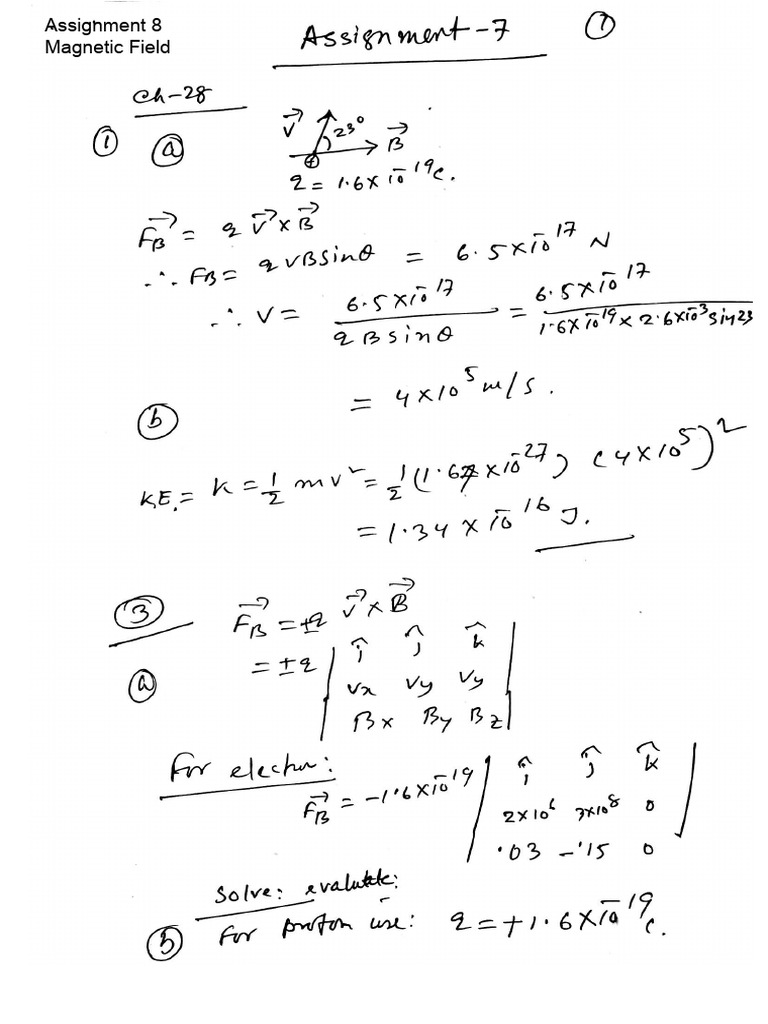 Assignment 8
Magnetic Field
Assignment-7
①
Ch-28
① ⓐ
V⃗ 23° B⃗
q = 1.6×10⁻¹⁹C.
F⃗_B = q V⃗×B⃗
∴ F_B = qVBsinθ = 6.5×10⁻¹⁷ N
∴ V = 6.5×10⁻¹⁷ / qBsinθ = 6.5×10⁻¹⁷ / 1.6×10⁻¹⁹ × 2.6×10⁻³ sin23
= 4×10⁵ m/s.
ⓑ
K.E. = K = ½ mv² = ½ (1.67×10⁻²⁷) (4×10⁵)²
= 1.34×10⁻¹⁶ J.
③ F⃗_B = ±q V⃗×B⃗
ⓐ = ±q | î ĵ k̂
Vx Vy Vy
Bx By Bz |
For electron:
F⃗_B = -1.6×10⁻¹⁹ | î ĵ k̂
2×10⁶ 3×10⁸ 0
.03 -.15 0 |
Solve: evaluate:
ⓑ For proton use: q = +1.6×10⁻¹⁹ C.